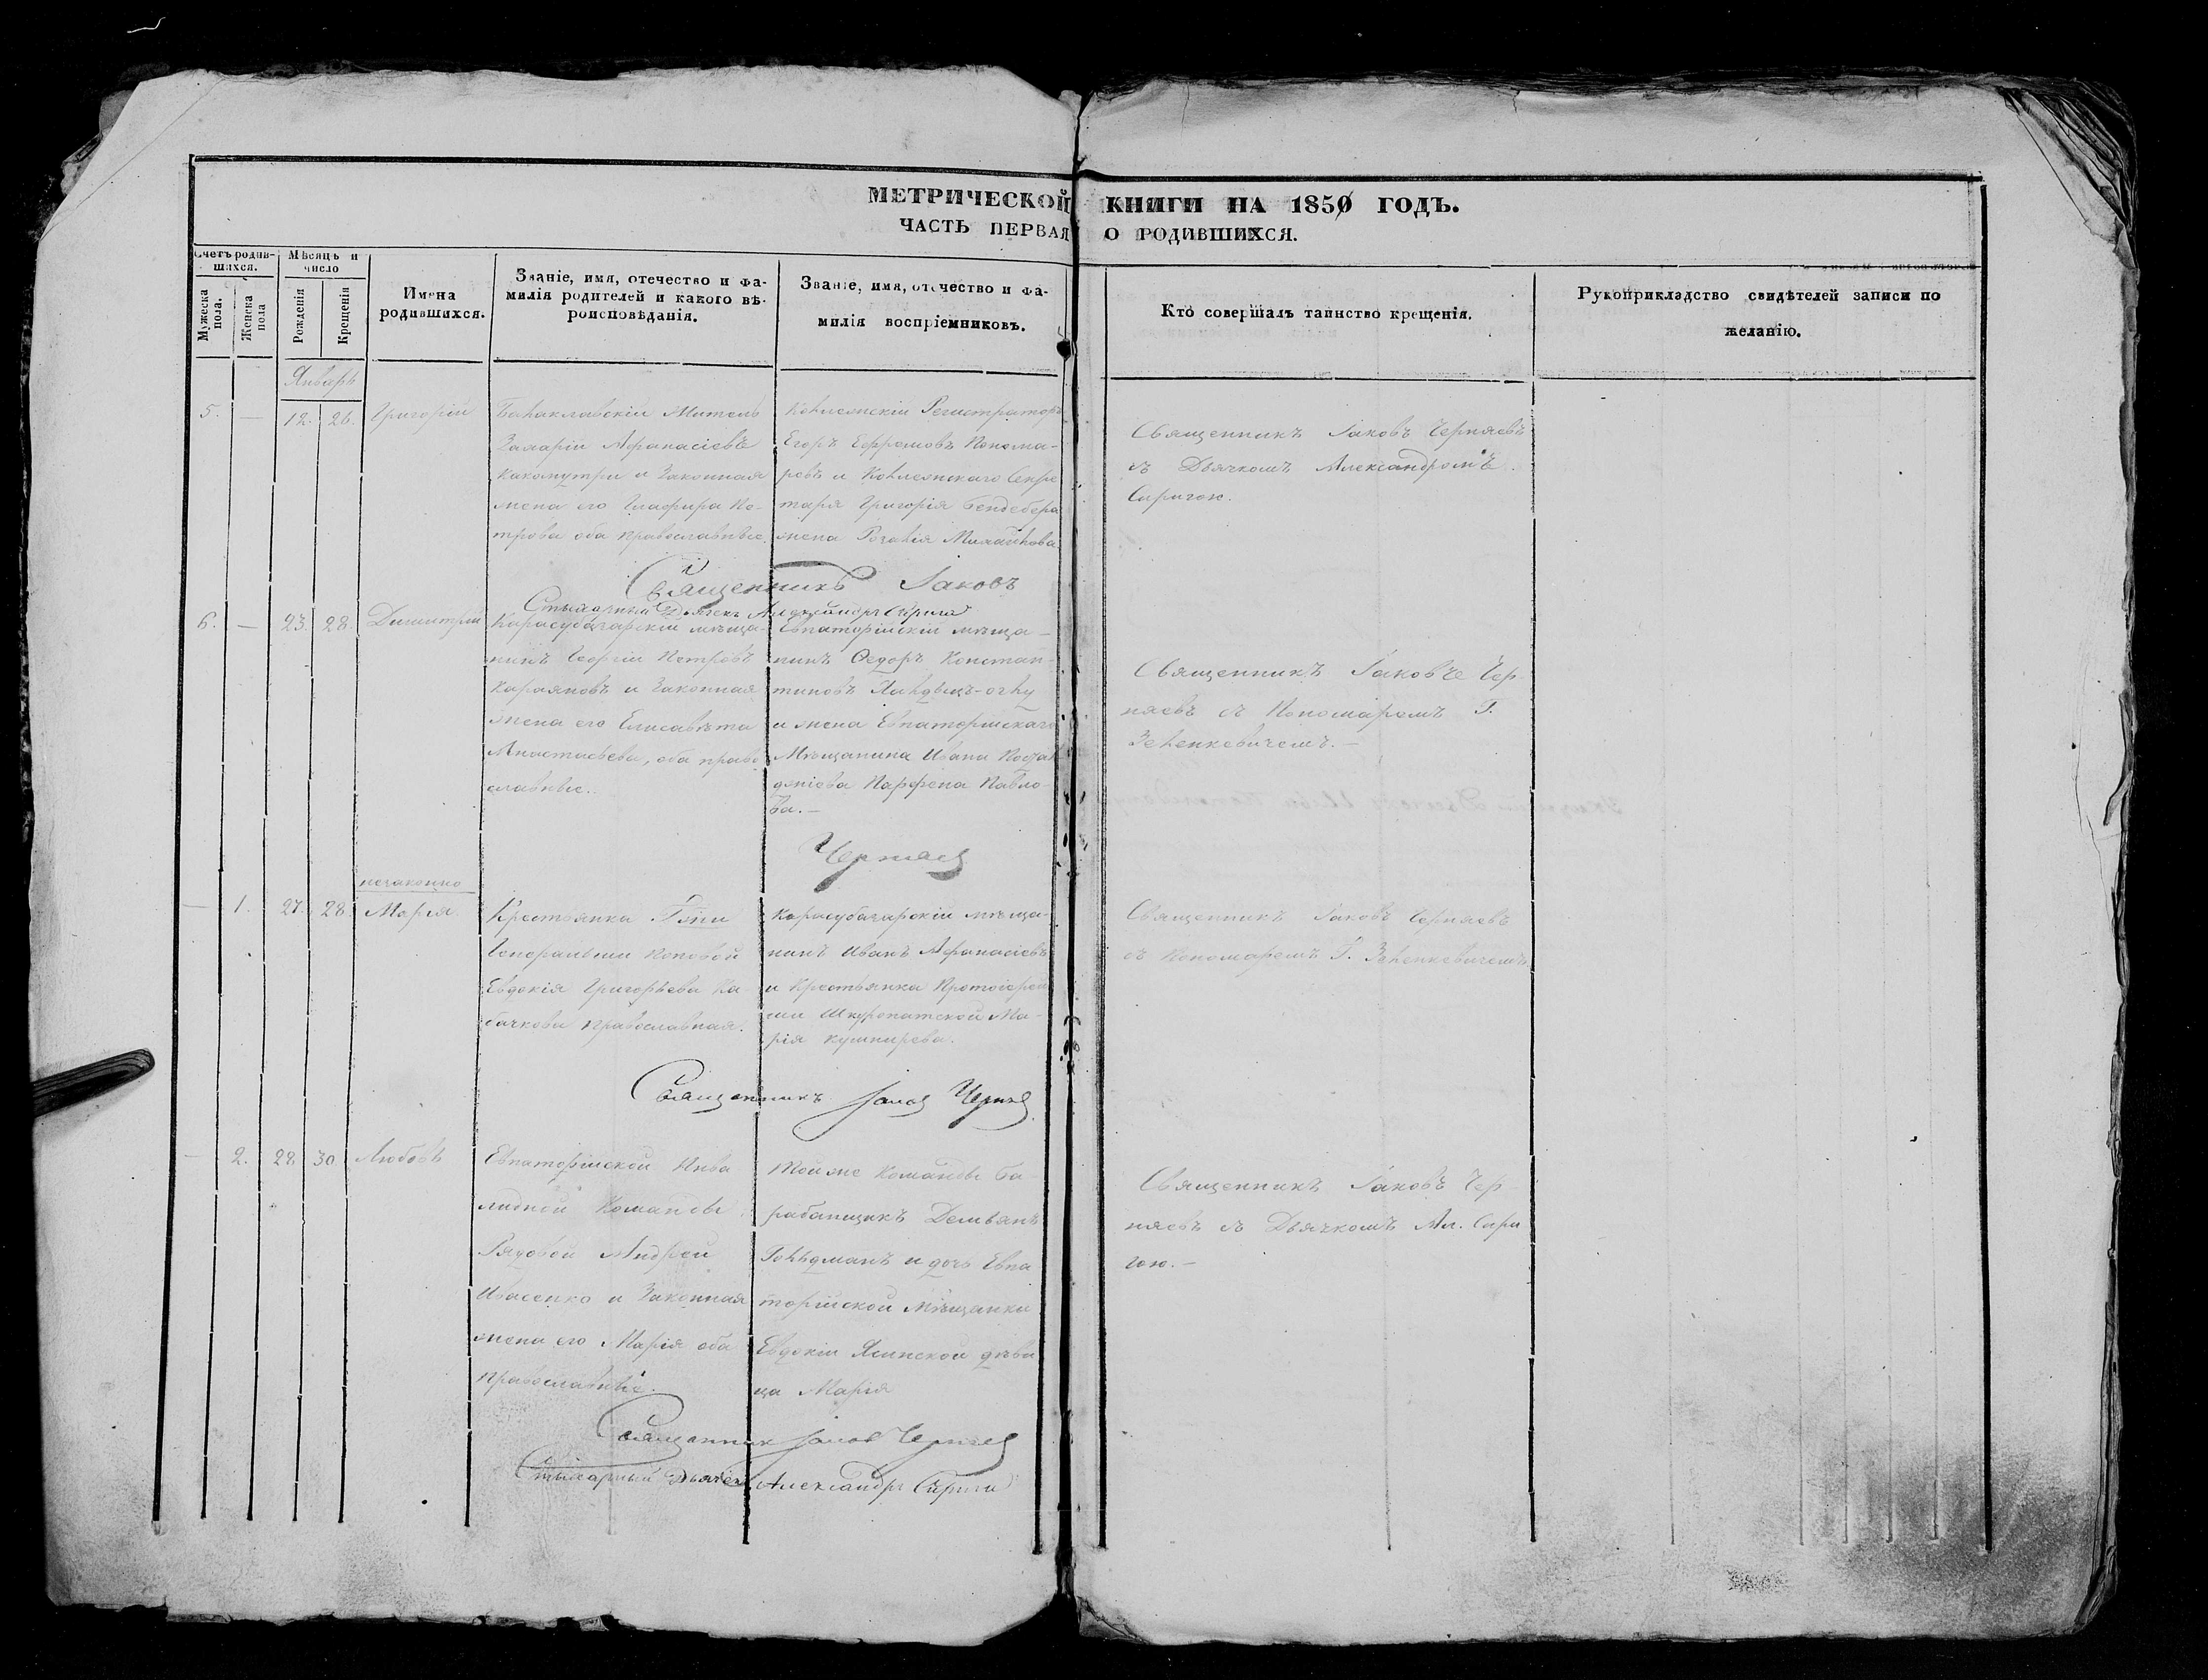 МЕТРИЧЕСКОЙ КНИГИ НА 1850 ГОДЪ.
ЧАСТЬ ПЕРВАЯ О РОДИВШИХСЯ.
Счетъ родив-
шихся.
Мужеска
пола.
Женска
пола
Мѣсяцъ и
число
Рожденія
Крещенія
Имена
родившихся.
Званіе, имя, отечество и фа-
милія родителей и какого вѣ-
роисповѣданія.
Званіе, имя, отечество и фа-
милія воспріемниковъ.
Кто совершалъ таинство крещенія.
Рукоприкладство свидѣтелей записи по
желанію.
Январь
5. — 12. 26. Григорій
Балаклавскій Житель
Захарій Афанасіевъ
и Законная
жена его Глафира Пе-
трова оба православные.
Коллежскій Регистраторъ
Егоръ Ефремовъ Понома-
ревъ и Коллежскаго Секре
таря Григорія
жена Розалія Михайлова
Священникъ Іаковъ Черняевъ
съ Дьячкомъ Александромъ
Сиригою.
Священникъ Іаковъ
Стихарный Дьячекъ Александръ Сирига
6. — 23. 28. Димитрій
Карасубазарскій мѣща-
нинъ Георгій Петровъ
Караяновъ и Законная
жена его Елисавѣта
Анастасьева, оба право
славные.
Евпаторійскій мѣща-
нинъ Ѳедоръ Констан-
тиновъ
и жена Евпаторійскаго
Мѣщанина Ивана
Парфена Павло-
ва.—
Священникъ Іаковъ Чер-
няевъ съ Пономаремъ Г.
Зеленкевичемъ.—
Черняев
незаконно
— 1. 27. 28. Марія.
Крестьянка Г-жи
Генеральши Поповой
Евдокія Григорьева Ка-
бачкова православная.
Карасубазарскій мѣща-
нинъ Иванъ Афанасіевъ
и Крестьянка Протоіерей
ши Шкуропатской Ма-
рія Кушнирева.
Священникъ Іаковъ Черняевъ
съ Пономаремъ Г. Зеленкевичемъ
Священникъ Іаков Черняев
— 2. 28 30 Любовь
Евпаторійской Инва
лидной Команды
Рядовой Андрей
Ивасенко и Законная
жена его Марія оба
православные.
Той же Команды Ба-
рабанщикъ Демьянъ
Гольдманъ и дочь Евпа
торійской мѣщанки
Евдокіи Ясинской дѣви
ца Марія
Священникъ Іаковъ Чер-
няевъ съ Дьячкомъ Ал. Сири
гою.—
Священник Іаков Черняев
Стихарный Дьячекъ Александръ Сирига